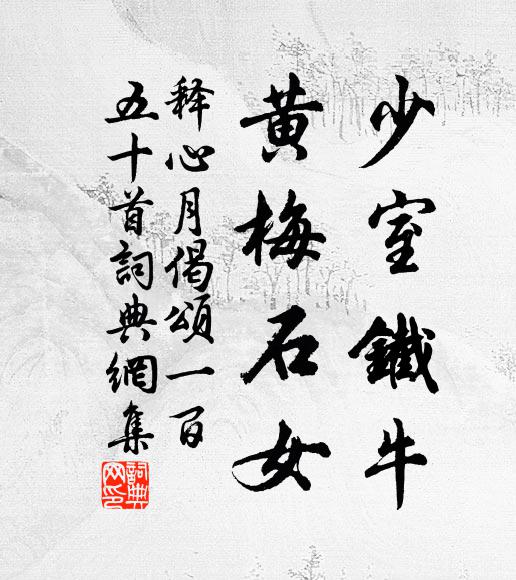 少室鐵牛
黄梅石女
释心月偈頌一百
五十首詞典網集
詞典网印